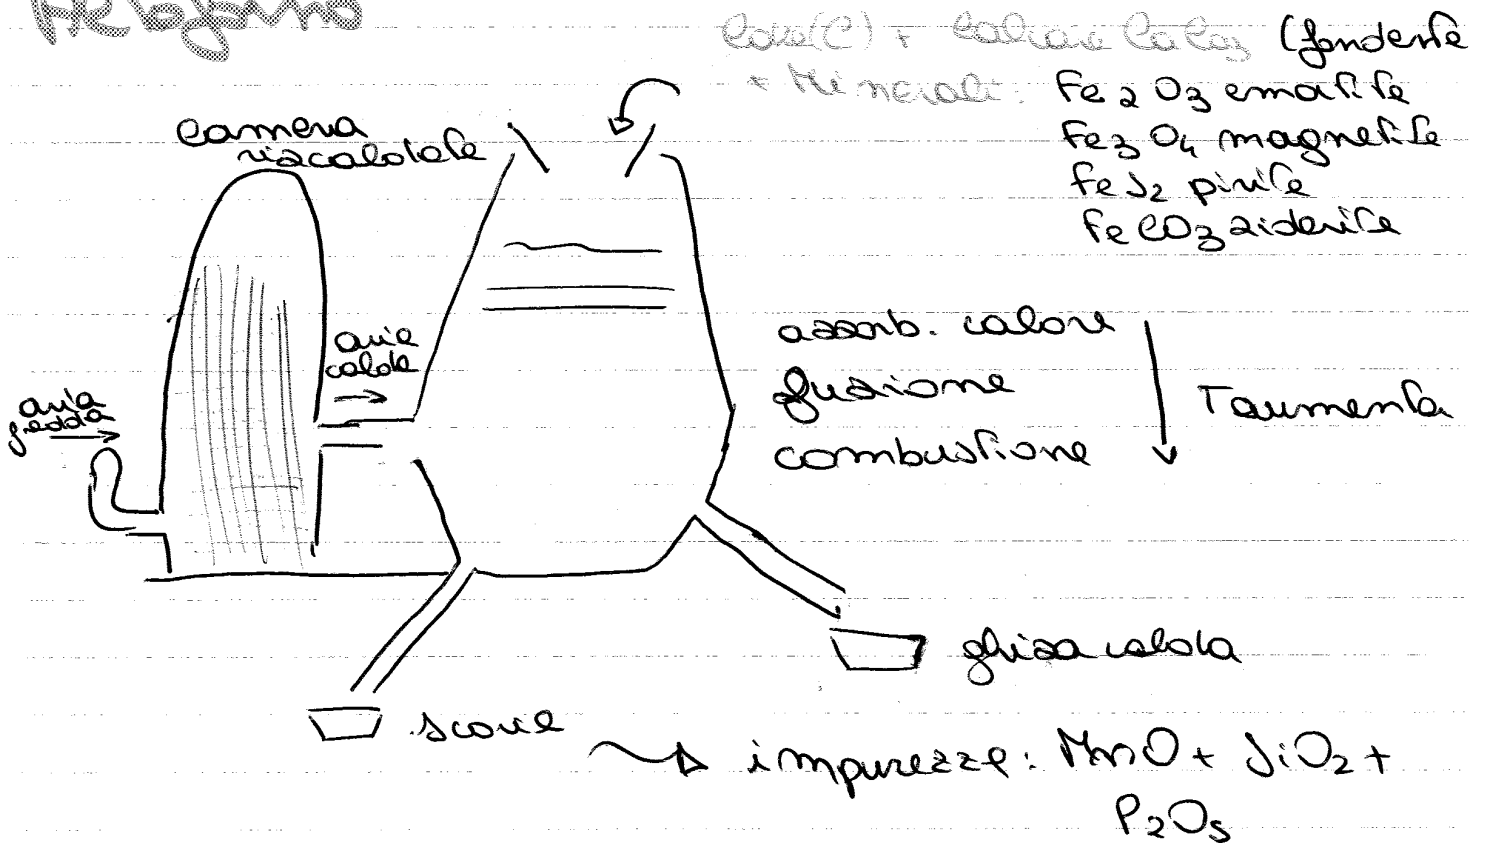 Altoforno
Coke (C) + calcare CaCO3 (fondente
+ Minerali: Fe2O3 ematite
Fe3O4 magnetite
FeS2 pirite
FeCO3 siderite
camera
riscaldata
aria
calda
aria
fredda
assorb. calore
fusione
combustione
T aumenta
ghisa calda
scorie
impurezze: MnO + SiO2 +
P2O5